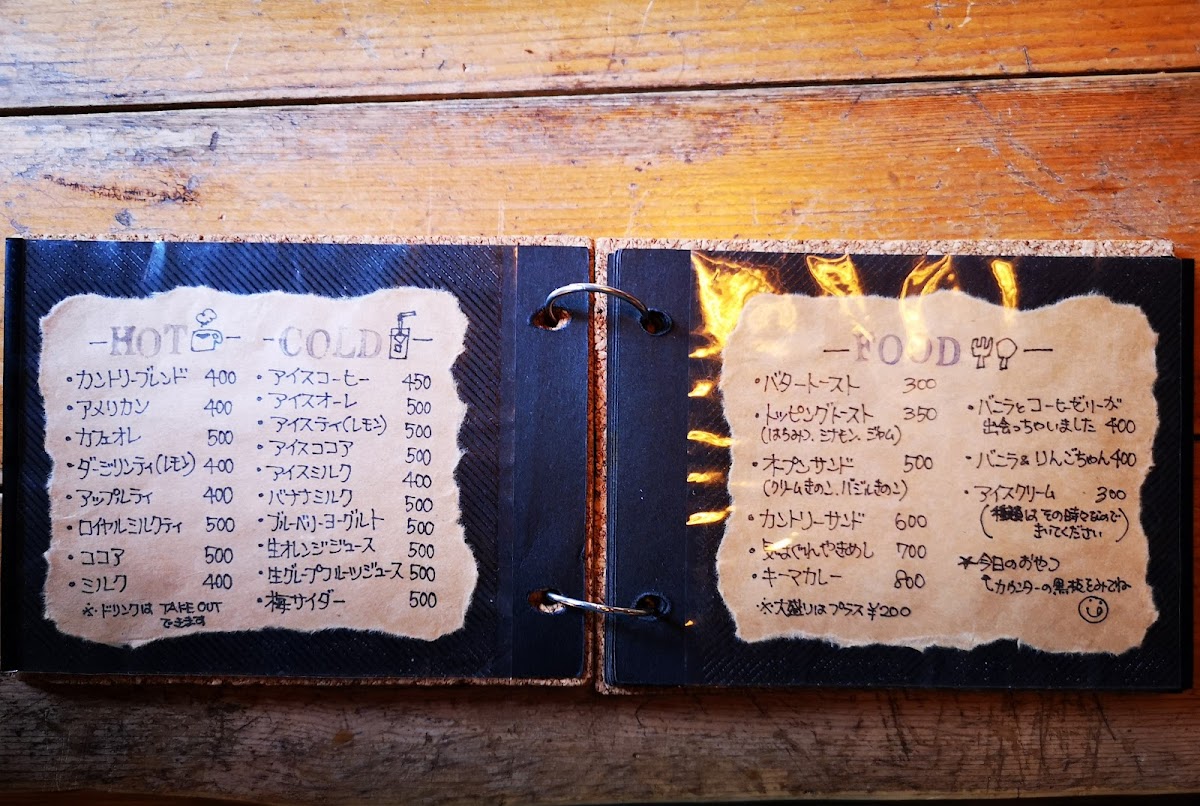 -HOT-
・カントリーブレンド 400
・アメリカン 400
・カフェオレ 500
・ダージリンティ(レモン) 400
・アップルティ 400
・ロイヤルミルクティ 500
・ココア 500
・ミルク 400
※ドリンクは TAKE OUT
できます
-COLD-
・アイスコーヒー 450
・アイスオーレ 500
・アイスティ(レモン) 500
・アイスココア 500
・アイスミルク 400
・バナナミルク 500
・ブルーベリーヨーグルト 500
・生オレンジジュース 500
・生グレープフルーツジュース 500
・梅サイダー 500
-FOOD-
・バタートースト 300
・トッピングトースト 350
(はちみつ、シナモン、ジャム)
・オープンサンド 500
(クリームきのこ、バジルきのこ)
・カントリーサンド 600
・気まぐれやきめし 700
・キーマカレー 800
※大盛りはプラス¥200
・バニラとコーヒーゼリーが
出会っちゃいました 400
・バニラ&りんごちゃん 400
・アイスクリーム 300
(種類は、その時々なので
きいてください)
※今日のおやつ
カウンターの黒板をみてね